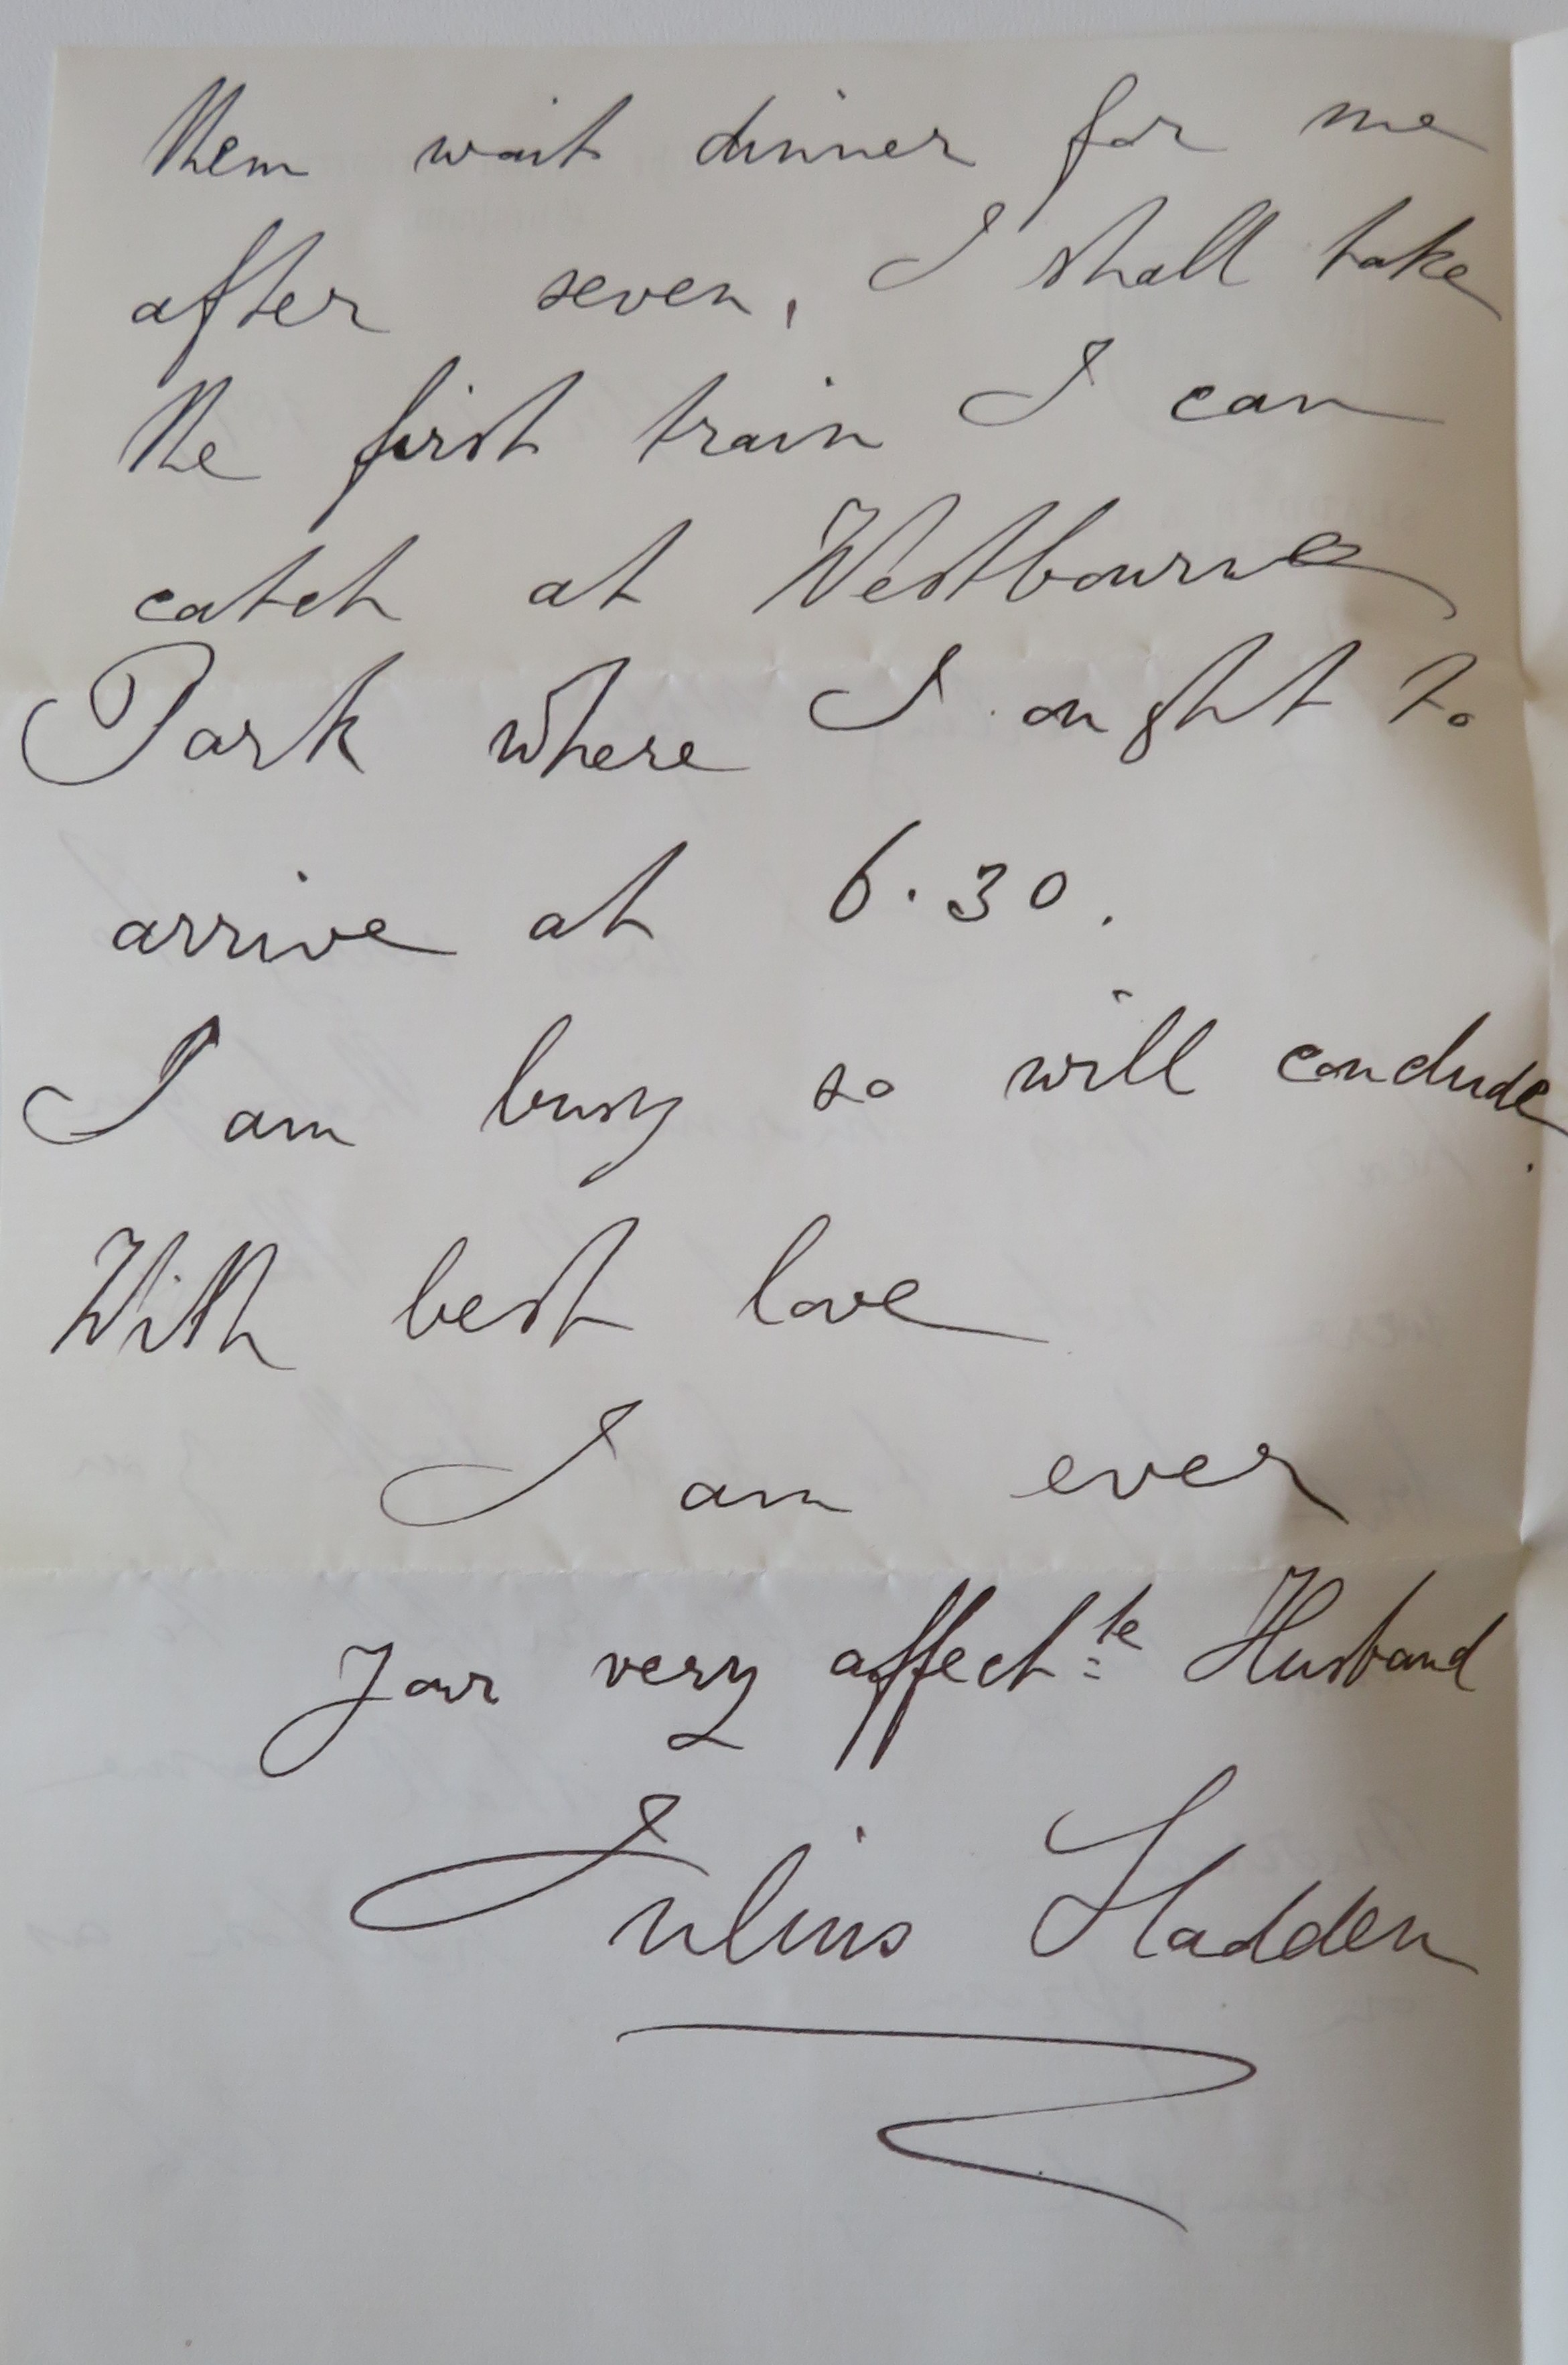 them wait dinner for me
after seven, I shall take
the first train I can
catch at Westbourne
Park where I ought to
arrive at 6.30.
I am busy so will conclude.
With best love
I am ever
Your very affectte Husband
Julius Hadden